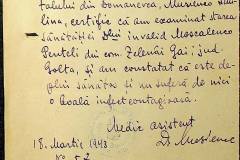 talului din Domanevca, Musienco
lina, certific că am examinat starea
sănătății lui invalid Moscalenco
Penteli din com. Zelenâi Gai: jud.
Golta, și am constatat că este de-
plin sănătos și nu suferă de nici
o boală infectcontagioasă.
Medic asistent
18. Martie 1943
D. Musienc
No. 52